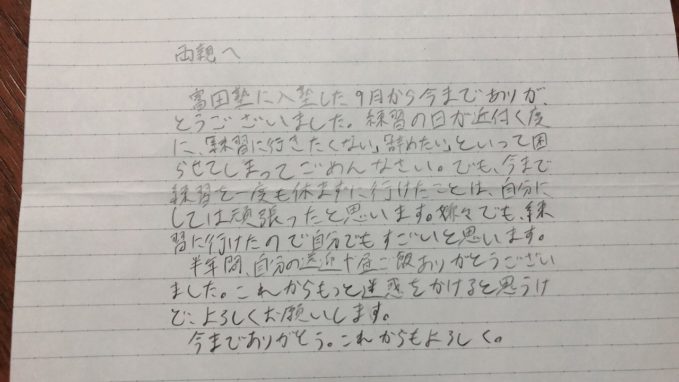 両親へ
富田塾に入塾した9月から今までありが
とうございました。練習の日が近付く度
に、練習に行きたくない、辞めたい、といって困
らせてしまってごめんなさい。でも、今まで
練習を一度も休まずに行けたことは、自分に
しては頑張ったと思います。嫌々でも、練
習に行けたので自分でもすごいと思います。
半年間、自分の送迎や昼ご飯ありがとうござい
ました。これからもっと迷惑をかけると思うけ
ど、よろしくお願いします。
今までありがとう。これからもよろしく。